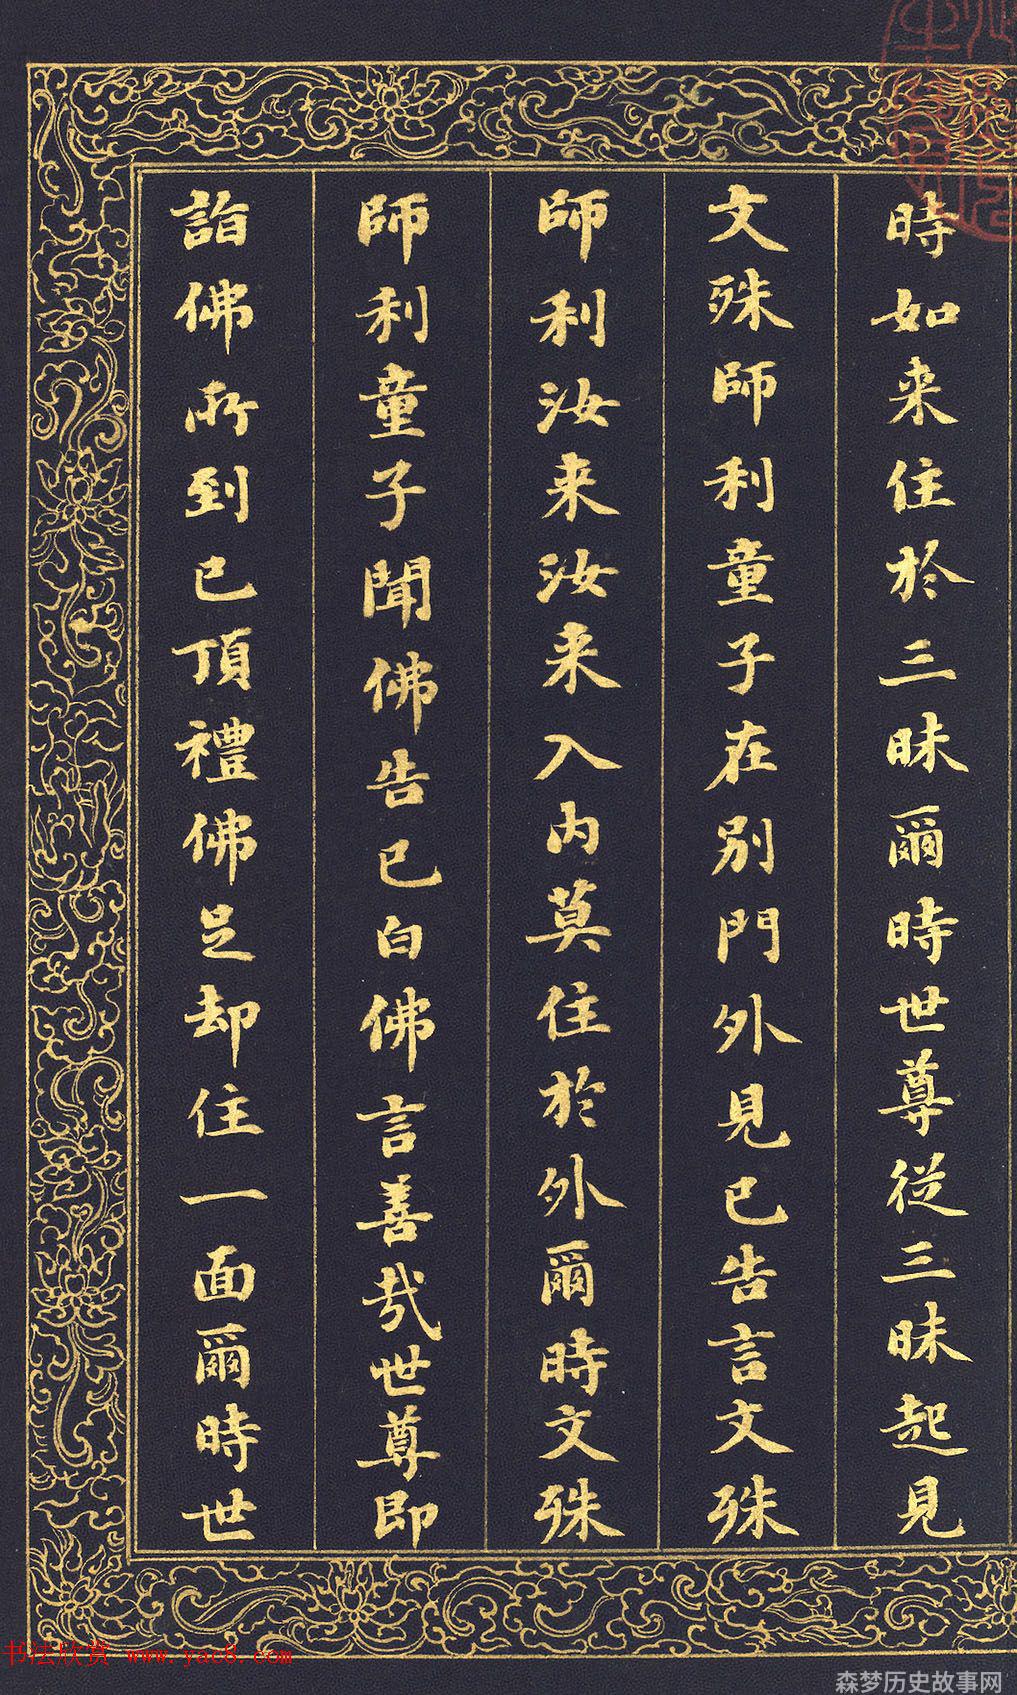 時如来住於三昧爾時世尊從三昧起見
文殊師利童子在別門外見已告言文殊
師利汝来汝来入内莫住於外爾時文殊
師利童子聞佛告已白佛言善哉世尊即
詣佛所到已頂禮佛足却住一面爾時世
书法欣赏 www.yac8.com
森梦历史故事网